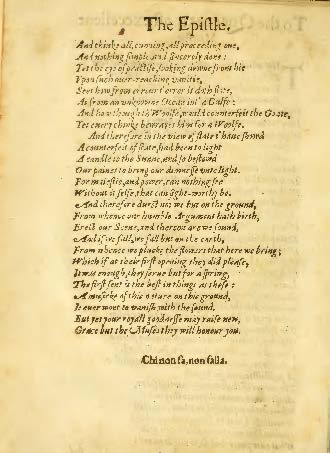 The Epistle.
And thinke all, cunning, all proceeding one,
And nothing simple, and sincerely done:
Yet the eye of practise, looking downe from hie
Upon such over-reaching vanitie,
Sees how from error t' error it doth flote,
As from an unknowne Ocean int' a Gulfe:
And how though th' Woolfe, would counterfeit the Goate,
Yet every chinke bewrayes him for a Woolfe.
And therefore in the view of state t' have show'd
A counterfeit of state, had been to light
A candle to the Sunne, and so bestow'd
Our paines to bring our dimnesse unto light.
For majestie, and power, can nothing see
Without it selfe, that can sight-worthy be.
And therefore durst not we but on the ground,
From whence our humble Argument hath birth,
Erect our Scene, and thereon are we found,
And if we fall, we fall but on the earth,
From whence we pluckt the flowers that here we bring;
Which if at their first opening they did please,
It was enough, they serve but for a spring,
The first sent is the best in things as these:
A musicke of this nature on this ground,
Is ever wont to vanish with the sound.
But yet your royall goodnesse may raise new,
Grace but the Muses they will honour you.
Chi non fa, non falla.